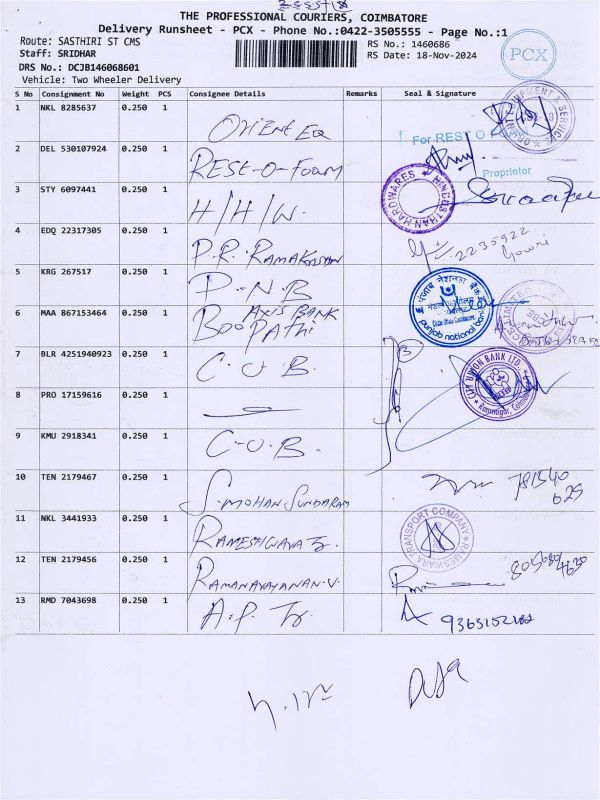 THE PROFESSIONAL COURIERS, COIMBATORE
Delivery Runsheet - PCX - Phone No.:0422-3505555 - Page No.:1
Route: SASTHIRI ST CMS
RS No.: 1460686
PCX
Staff: SRIDHAR
RS Date: 18-Nov-2024
DRS No.: DCJB14606860​1
Vehicle: Two Wheeler Delivery
S No Consignment No Weight PCS Consignee Details Remarks Seal & Signature
1 NKL 8285637 0.250 1
For REST O
2 DEL 530107924 0.250 1 REST-O-FOAM
Proprietor
3 STY 6097441 0.250 1 H/H/W. HINDUSTHAN HARDWARES
4 EDQ 22317305 0.250 1 P.R. RAMAKRISHNAN 2235922 Gowri
5 KRG 267517 0.250 1 P.N.B punjab national bank
6 MAA 867153464 0.250 1 AXIS BANK
7 BLR 4251940923 0.250 1 C.U.B.
8 PRO 17159616 0.250 1
9 KMU 2918341 0.250 1 C.U.B.
10 TEN 2179467 0.250 1 S. MOHAN SUNDARAM 781540
625
11 NKL 3441933 0.250 1 RAMESHWARA RAMESWARA TRANSPORT COMPANY
12 TEN 2179456 0.250 1 RAMANARAYANAN.V.
13 RMD 7043698 0.250 1 A.P.